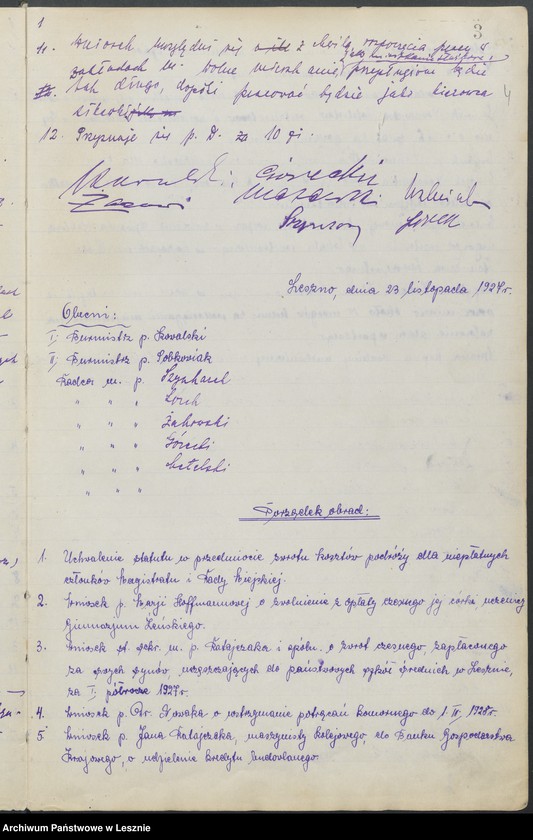 1
3
11. Wniosek uwzględnia się z chwilą rozpoczęcia pracy w
zakładach m. wolne mieszkanie przysługiwać będzie
tak długo, dopóki pracować będzie jako kierowca
12. Przyznaje się p. D. za 10 g.
Kowalski
Górecki
Leszno, dnia 23 listopada 1927 r.
Obecni:
I. Burmistrz p. Kowalski
II. Burmistrz p. Sobkowiak
Radca m. p. Szynharel
" " " Zorek
" " " Żakowski
" " " Górecki
" " " Metelski
" " "
Porządek obrad:
1. Uchwalenie statutu w przedmiocie zwrotu kosztów podróży dla niepłatnych
członków Magistratu i Rady Miejskiej.
2. Wniosek p. Marji Hoffmannowej o zwolnienie z opłaty czesnego jej córki uczenicy
Gimnazjum Żeńskiego.
3. Wniosek st. sekr. m. p. Ratajczaka i spóln. o zwrot czesnego, zapłaconego
za swych synów, uczęszczających do państwowych szkół średnich w Lesznie,
za I. półrocze 1927 r.
4. Wniosek p. Dr. Nowaka o wstrzymanie potrąceń komornego do 1. IV. 1928 r.
5. Wniosek p. Jana Ratajczaka, maszynisty kolejowego, do Banku Gospodarstwa
Krajowego, o udzielenie kredytu budowlanego.
Archiwum Państwowe w Lesznie